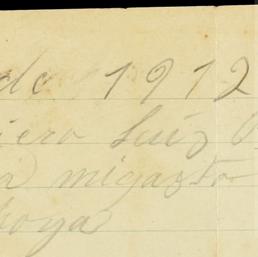 de 1912
iero Luiz
a migasto
boya